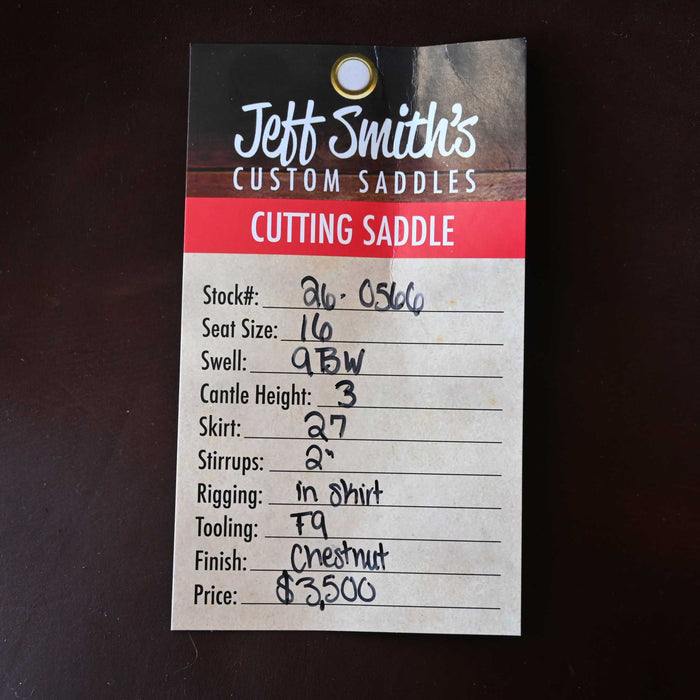 Jeff Smith's
CUSTOM SADDLES
CUTTING SADDLE
Stock#: 26-0566
Seat Size: 16
Swell: 9BW
Cantle Height: 3
Skirt: 27
Stirrups: 2"
Rigging: in skirt
Tooling: F9
Finish: Chestnut
Price: $3,500